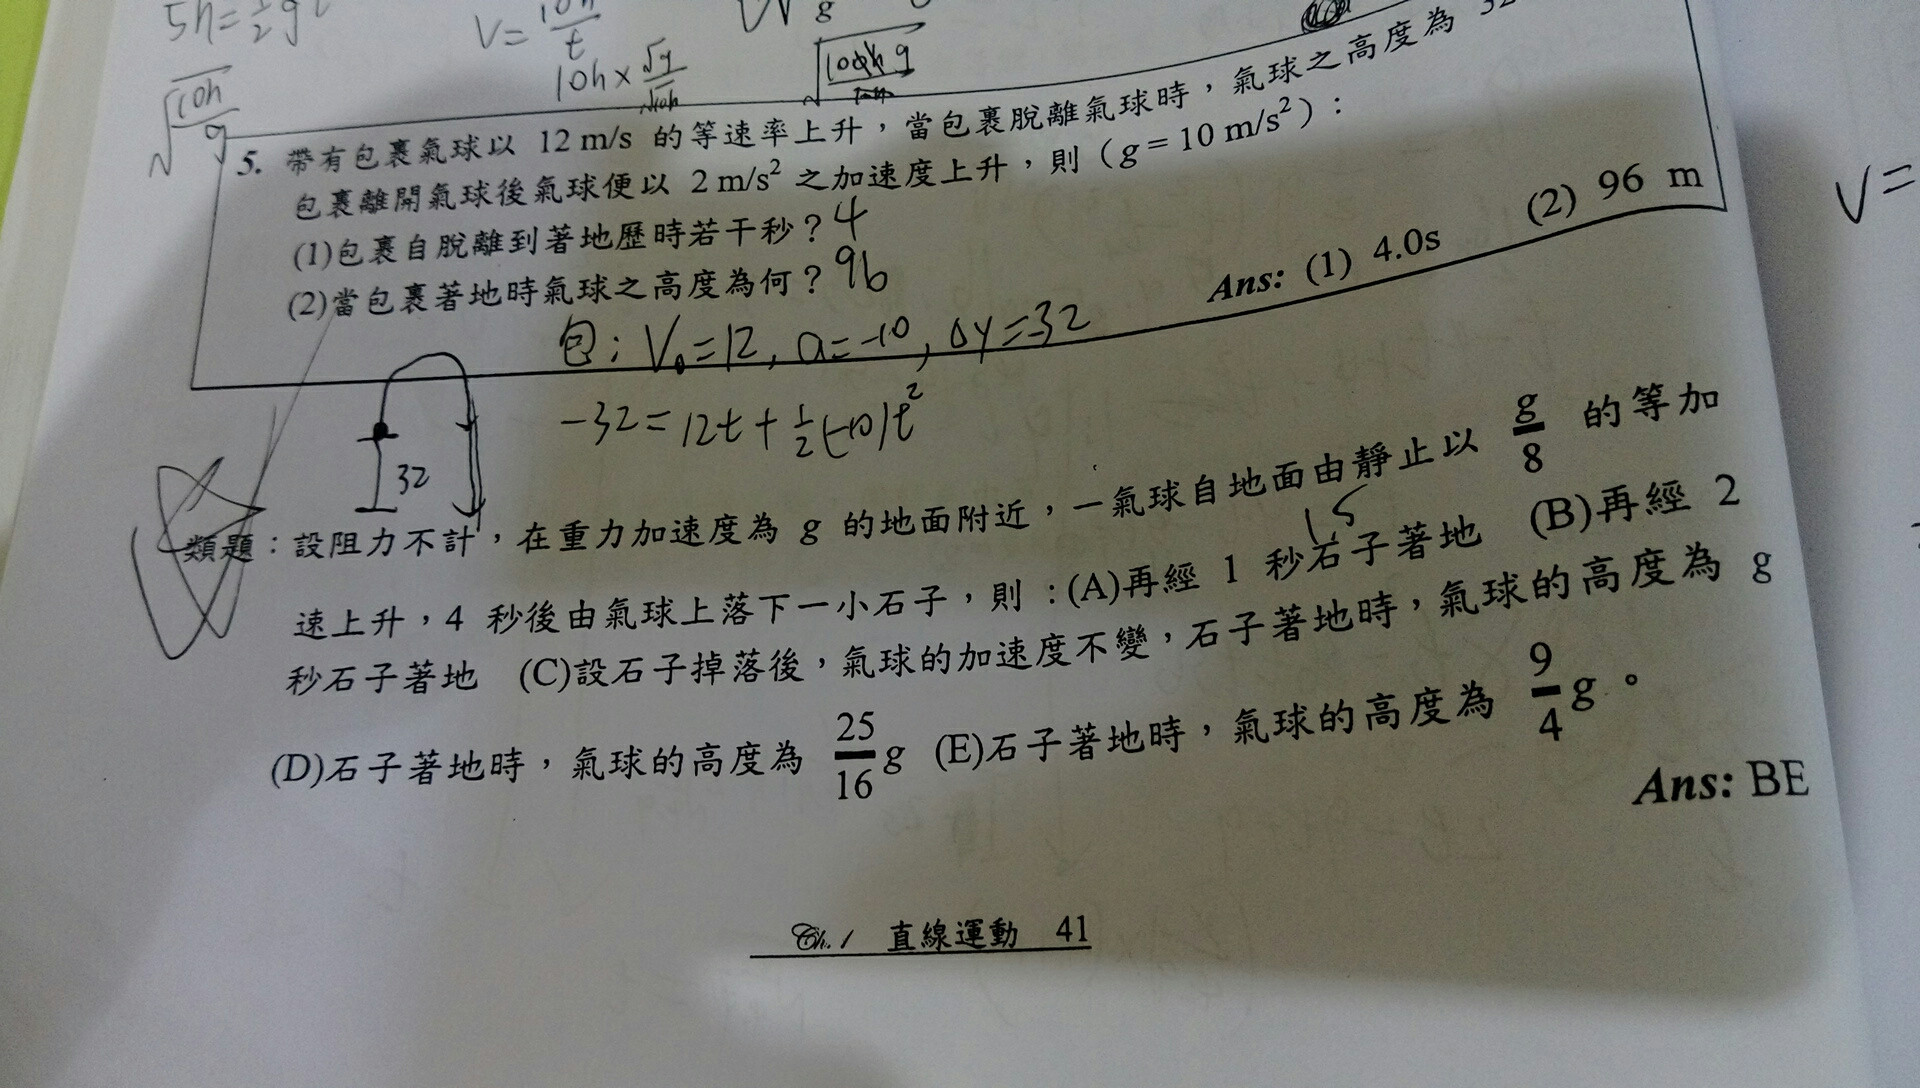 5h=½g
V=10h/t
g
√10h/g
10h×√g/√10h
5. 帶有包裹氣球以 12 m/s 的等速率上升，當包裹脫離氣球時，氣球之高度為 32
包裹離開氣球後氣球便以 2 m/s² 之加速度上升，則（g = 10 m/s²）：
(1)包裹自脫離到著地歷時若干秒？4
(2)當包裹著地時氣球之高度為何？96
Ans: (1) 4.0s (2) 96 m
包：V₀=12, a=-10, Δy=-32
-32=12t+½(-10)t²
32
類題：設阻力不計，在重力加速度為 g 的地面附近，一氣球自地面由靜止以 g/8 的等加
速上升，4 秒後由氣球上落下一小石子，則：(A)再經 1 秒石子著地 (B)再經 2
秒石子著地 (C)設石子掉落後，氣球的加速度不變，石子著地時，氣球的高度為 g
(D)石子著地時，氣球的高度為 25/16 g (E)石子著地時，氣球的高度為 9/4 g。
Ans: BE
Ch.1 直線運動 41
V=